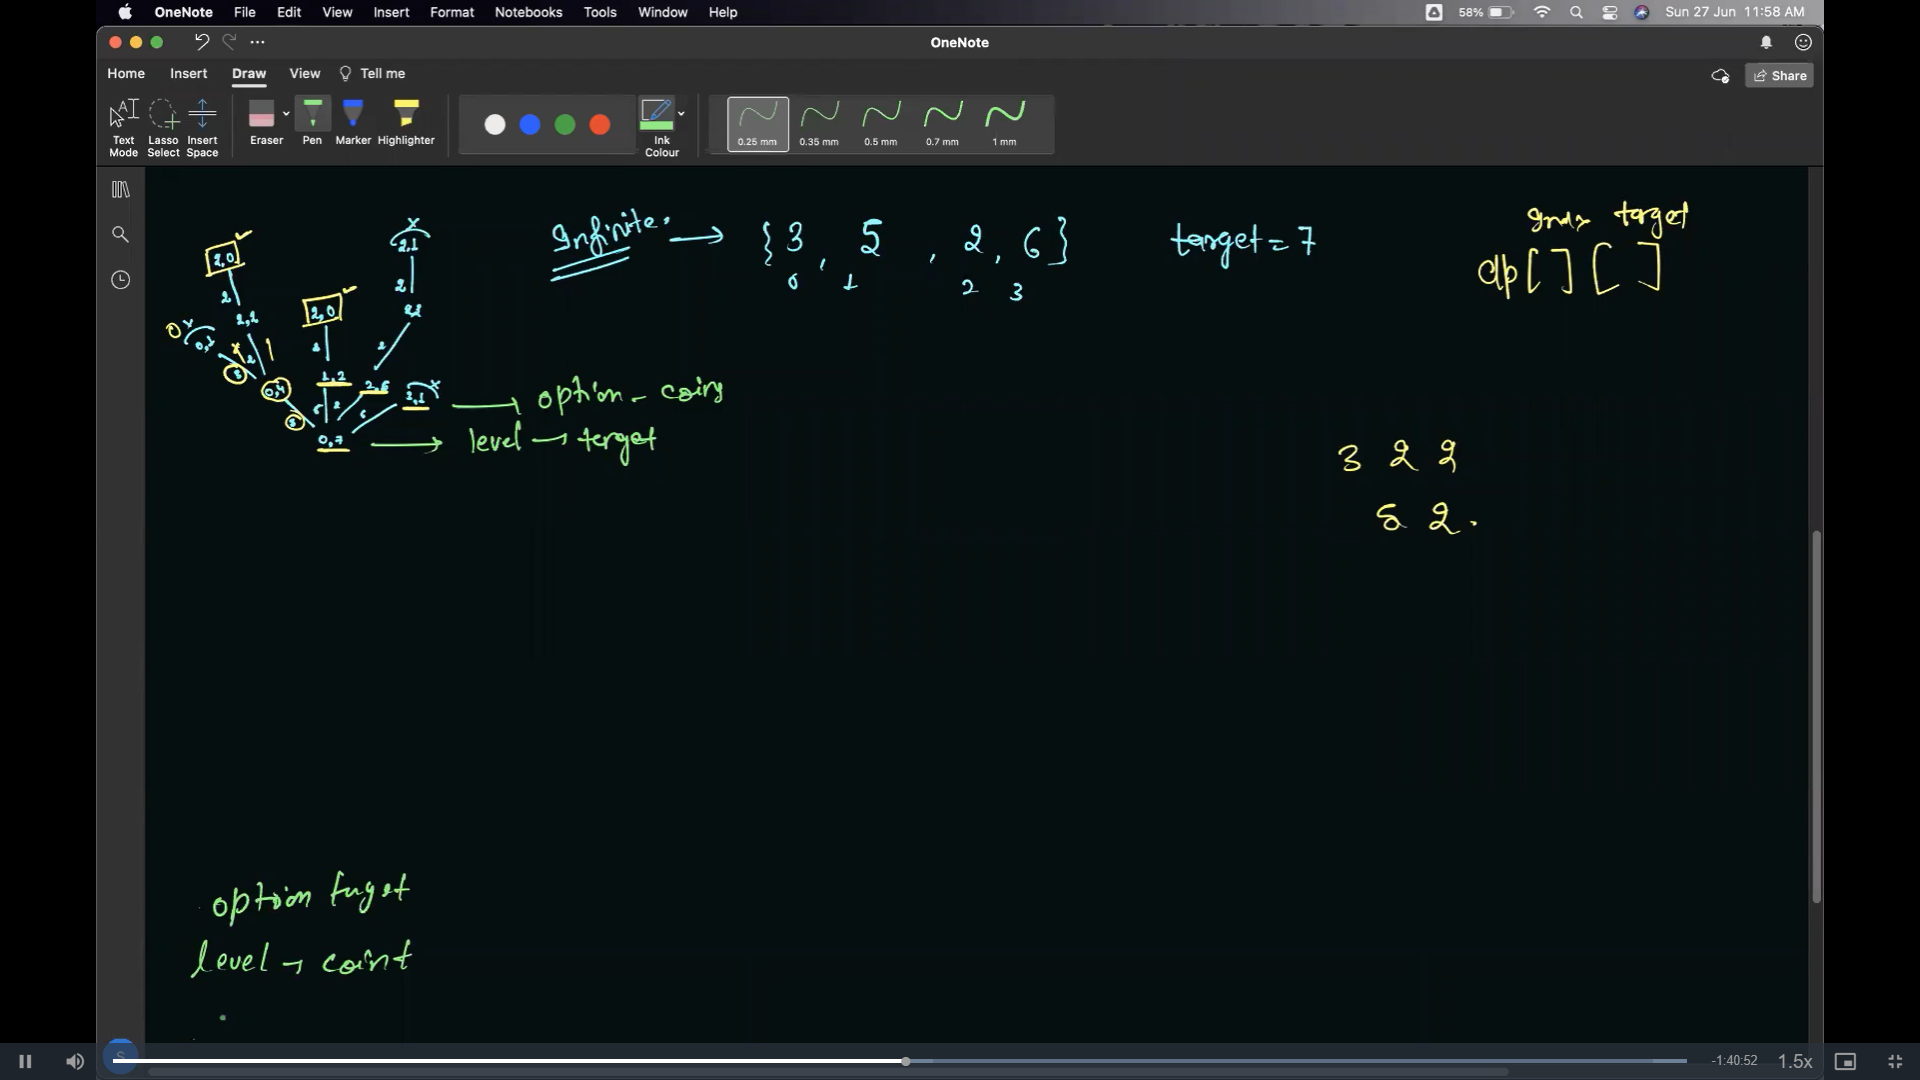 OneNote File Edit View Insert Format Notebooks Tools Window Help 58% Sun 27 Jun 11:58 AM
OneNote
Home Insert Draw View Tell me Share
Text Mode Lasso Select Insert Space Eraser Pen Marker Highlighter Ink Colour 0.25 mm 0.35 mm 0.5 mm 0.7 mm 1 mm
Infinite. → {3, 5, 2, 6} target = 7
0 1 2 3
target
dp[ ][ ]
2,0 2,1
2 2
2,2 2,0 2,2
0 0,1 2 2 2
3 0,4 1,2 2,5 2,1 → option - coins
3 5 2 6
0,7 → level → target
3 2 2
5 2.
option target
level → coint
S
-1:40:52 1.5x